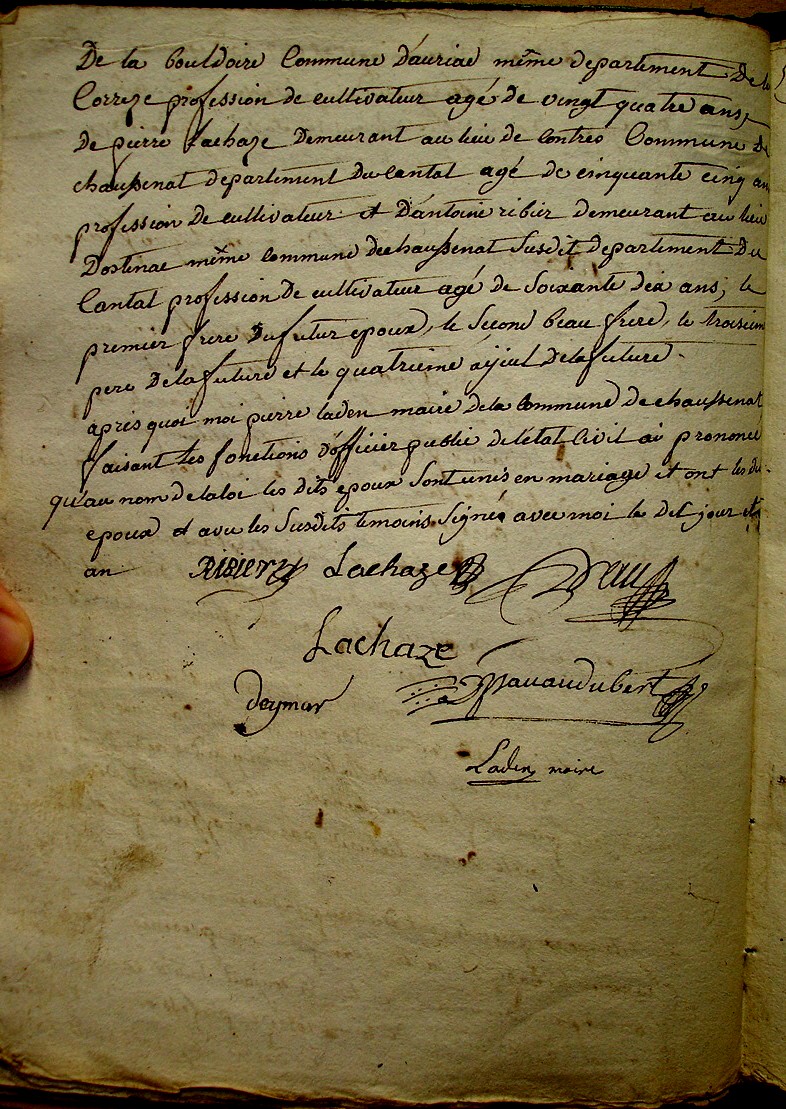 De la bouldoire Commune D'auriac même departement De la
Correze profession de cultivateur agé de vingt quatre ans,
de pierre Lachaze Demeurant au lieu de Contres Commune De
chaussenat departement Du Cantal agé de cinquante cinq ans
profession De cultivateur et D'antoine ribier demeurant au lieu
Dostenac même commune de chaussenat Susdit departement Du
Cantal profession De cultivateur agé de Soixante dix ans; le
premier frere Du futur epoux, le Second beau frere, le troisieme
pere De la future et le quatrieme ayiul De la future.
apres quoi moi pierre laden maire de la commune de chaussenat
faisant les fonctions D'officier public de l'etat Civil ai prononcé
qu'au nom de la loi les dits epoux sont unis en mariage et ont les dits
epoux et avec les Susdits temoins Signés avec moi le dit jour et
an RIBIER Lachaze
Lachaze
deymar Pavaudubert
Laden maire